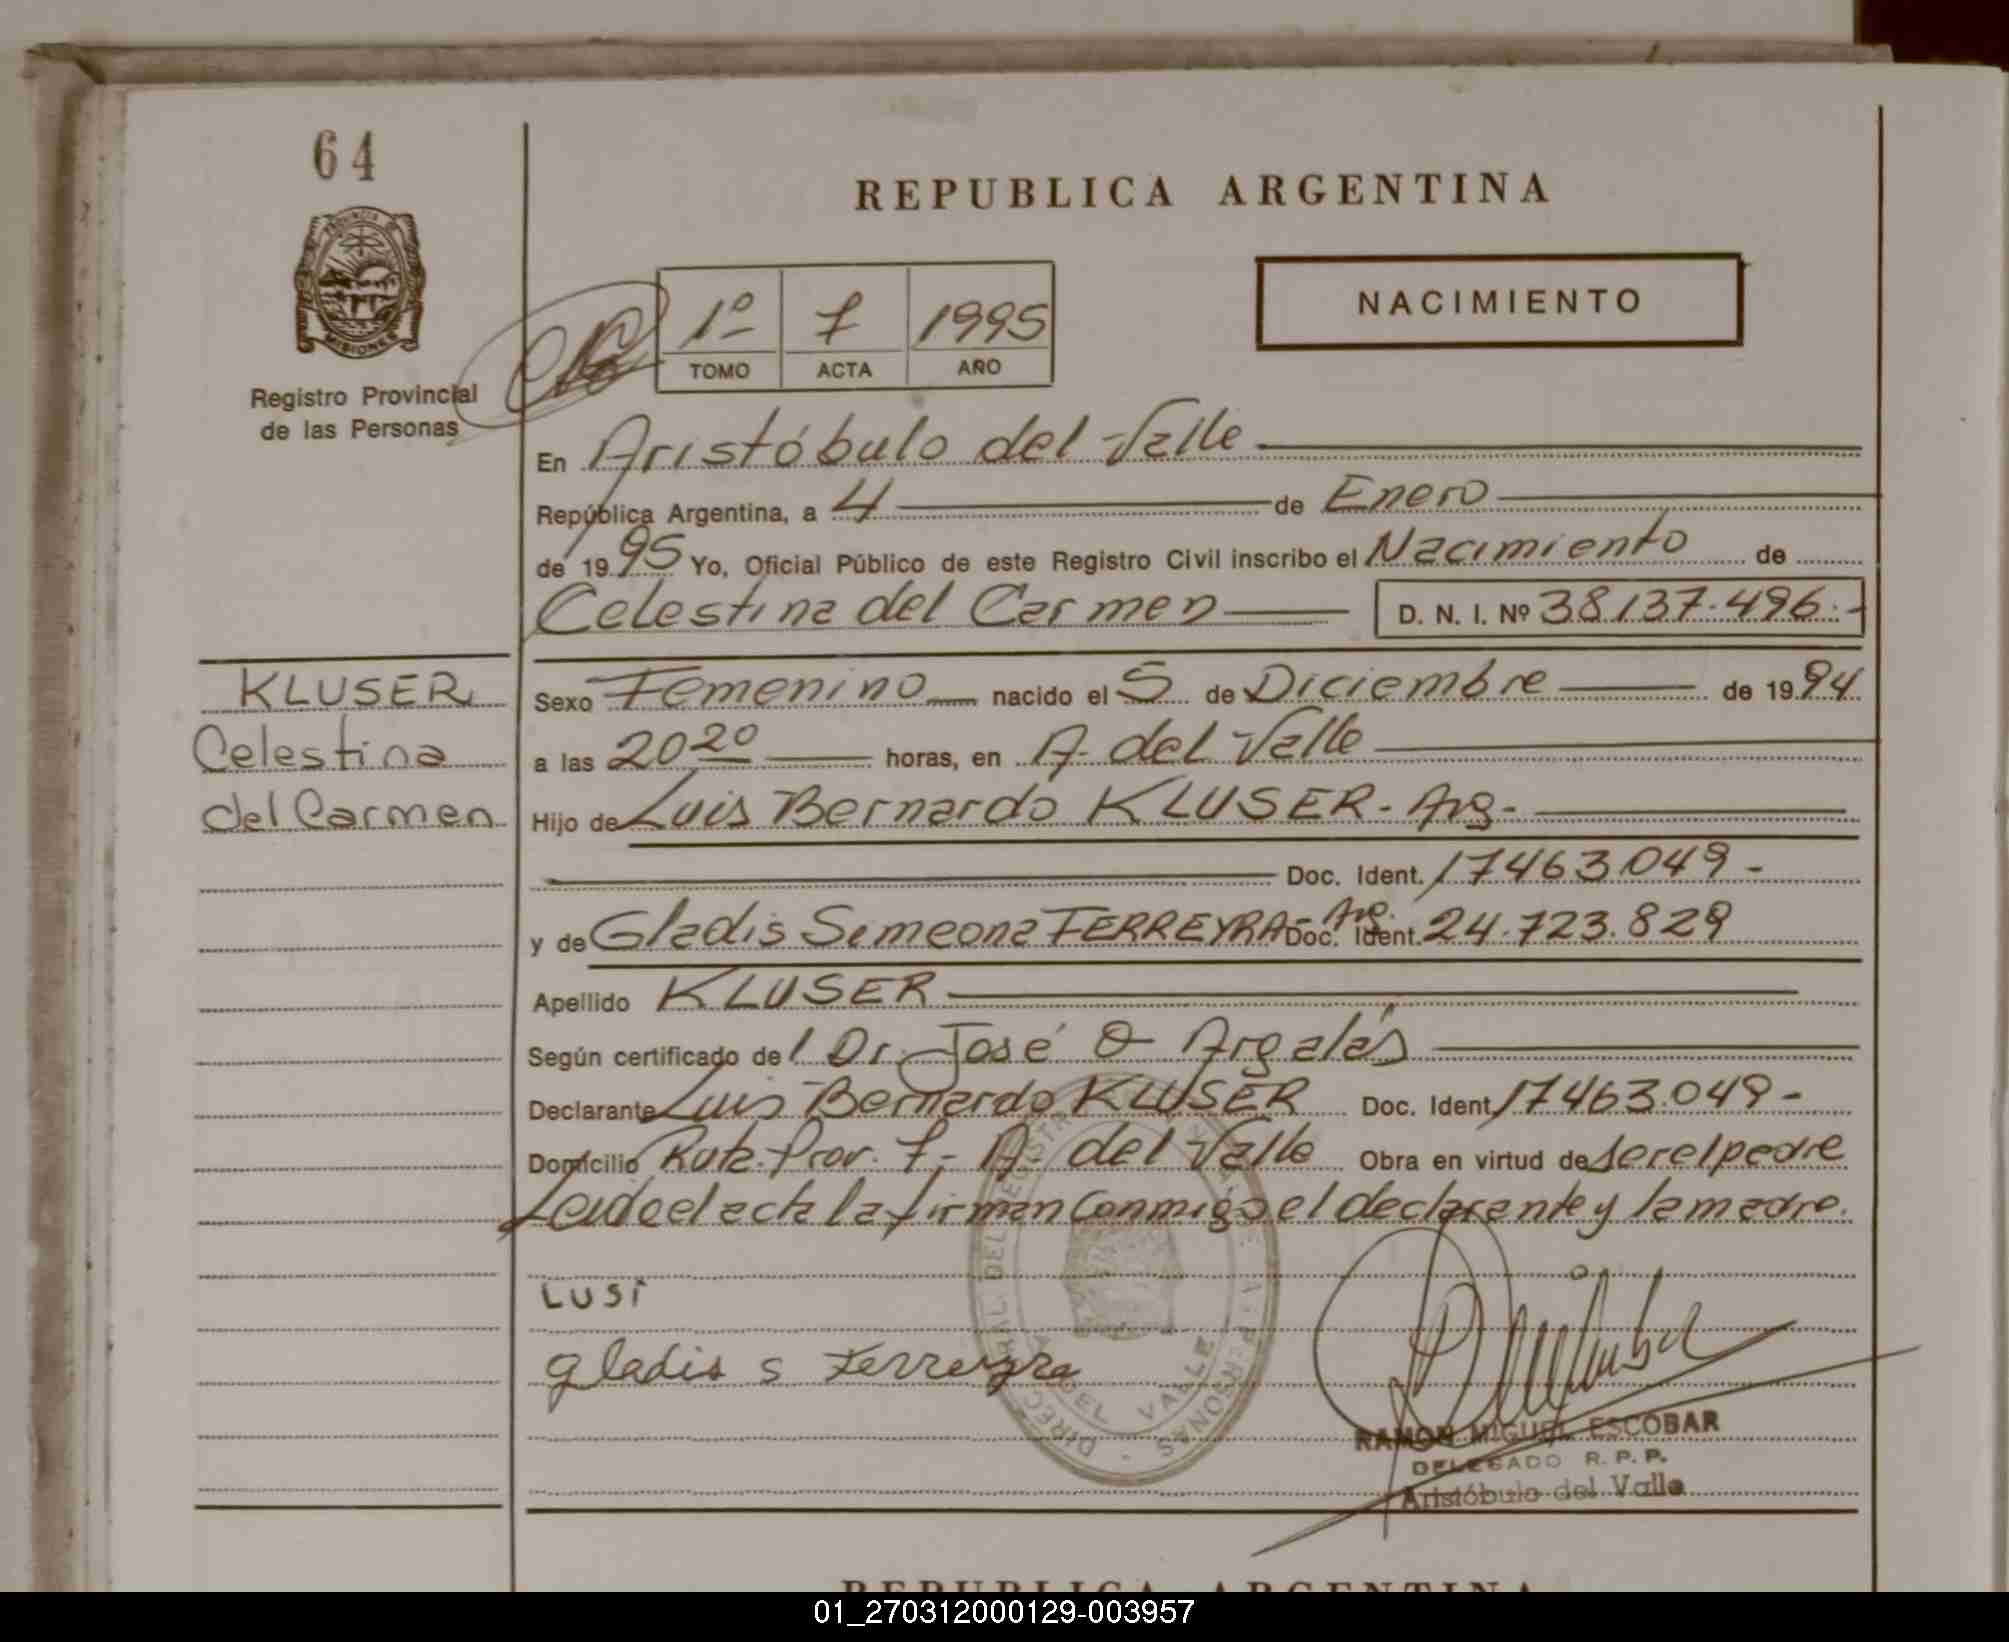 64
REPUBLICA ARGENTINA
PROVINCIA DE
MISIONES
Registro Provincial
de las Personas
1º 7 1995
TOMO ACTA AÑO
NACIMIENTO
En Aristóbulo del Valle
República Argentina, a 4 de Enero
de 1995 Yo, Oficial Público de este Registro Civil inscribo el Nacimiento de
Celestina del Carmen D. N. I. Nº 38.137.496.-
KLUSER
Celestina
del Carmen
Sexo Femenino nacido el 5 de Diciembre de 1994
a las 20 20 horas, en A. del Valle
Hijo de Luis Bernardo KLUSER - Arg -
Doc. Ident. 17463.049 -
y de Gladis Simeona FERREYRA - Arg. Doc. Ident. 24.723.829
Apellido KLUSER
Según certificado del Dr. José O Argalás
Declarante Luis Bernardo KLUSER Doc. Ident. 17463.049 -
Domicilio Ruta Prov. 7, - A. del Valle Obra en virtud de ser el padre
Leida el acta la firman conmigo el declarante y la madre.
LUSI
gladis s Ferreyra
DEL VALLE
RAMON MIGUEL ESCOBAR
DELEGADO R. P. P.
Aristóbulo del Valle
REPUBLICA ARGENTINA
01_270312000129-003957